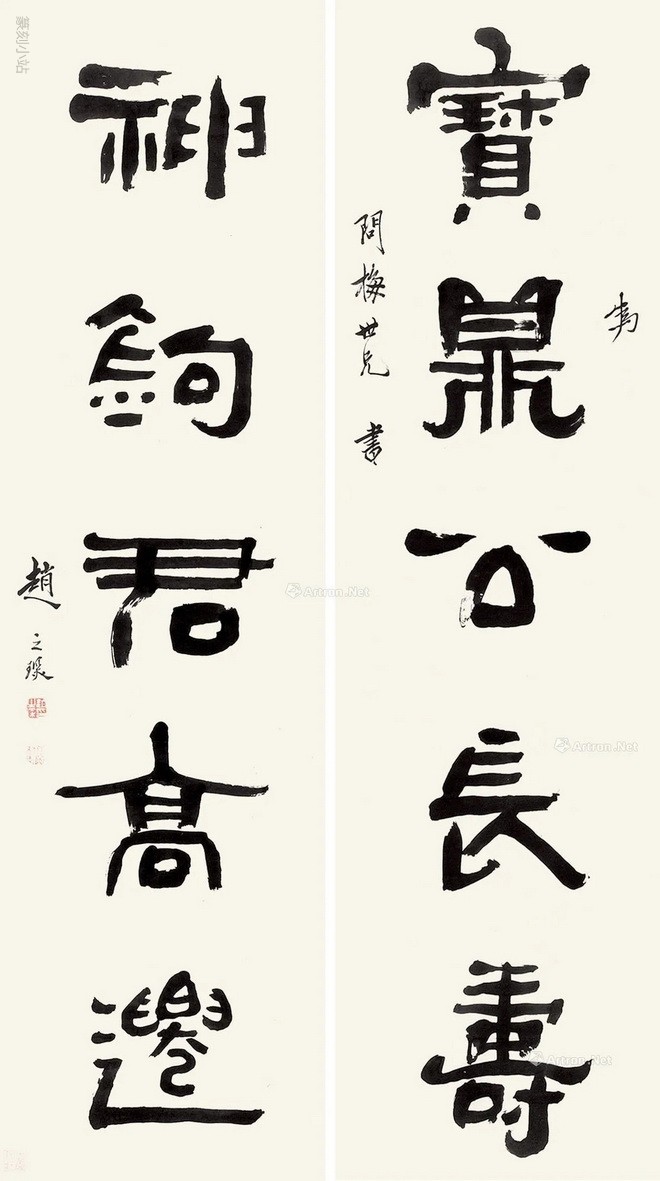 為
寶鼎公長壽
問梅世兄 書
神鉤君高遷
趙之琛
篆刻小站
Artron.Net
Artron.Net
Artron.Net